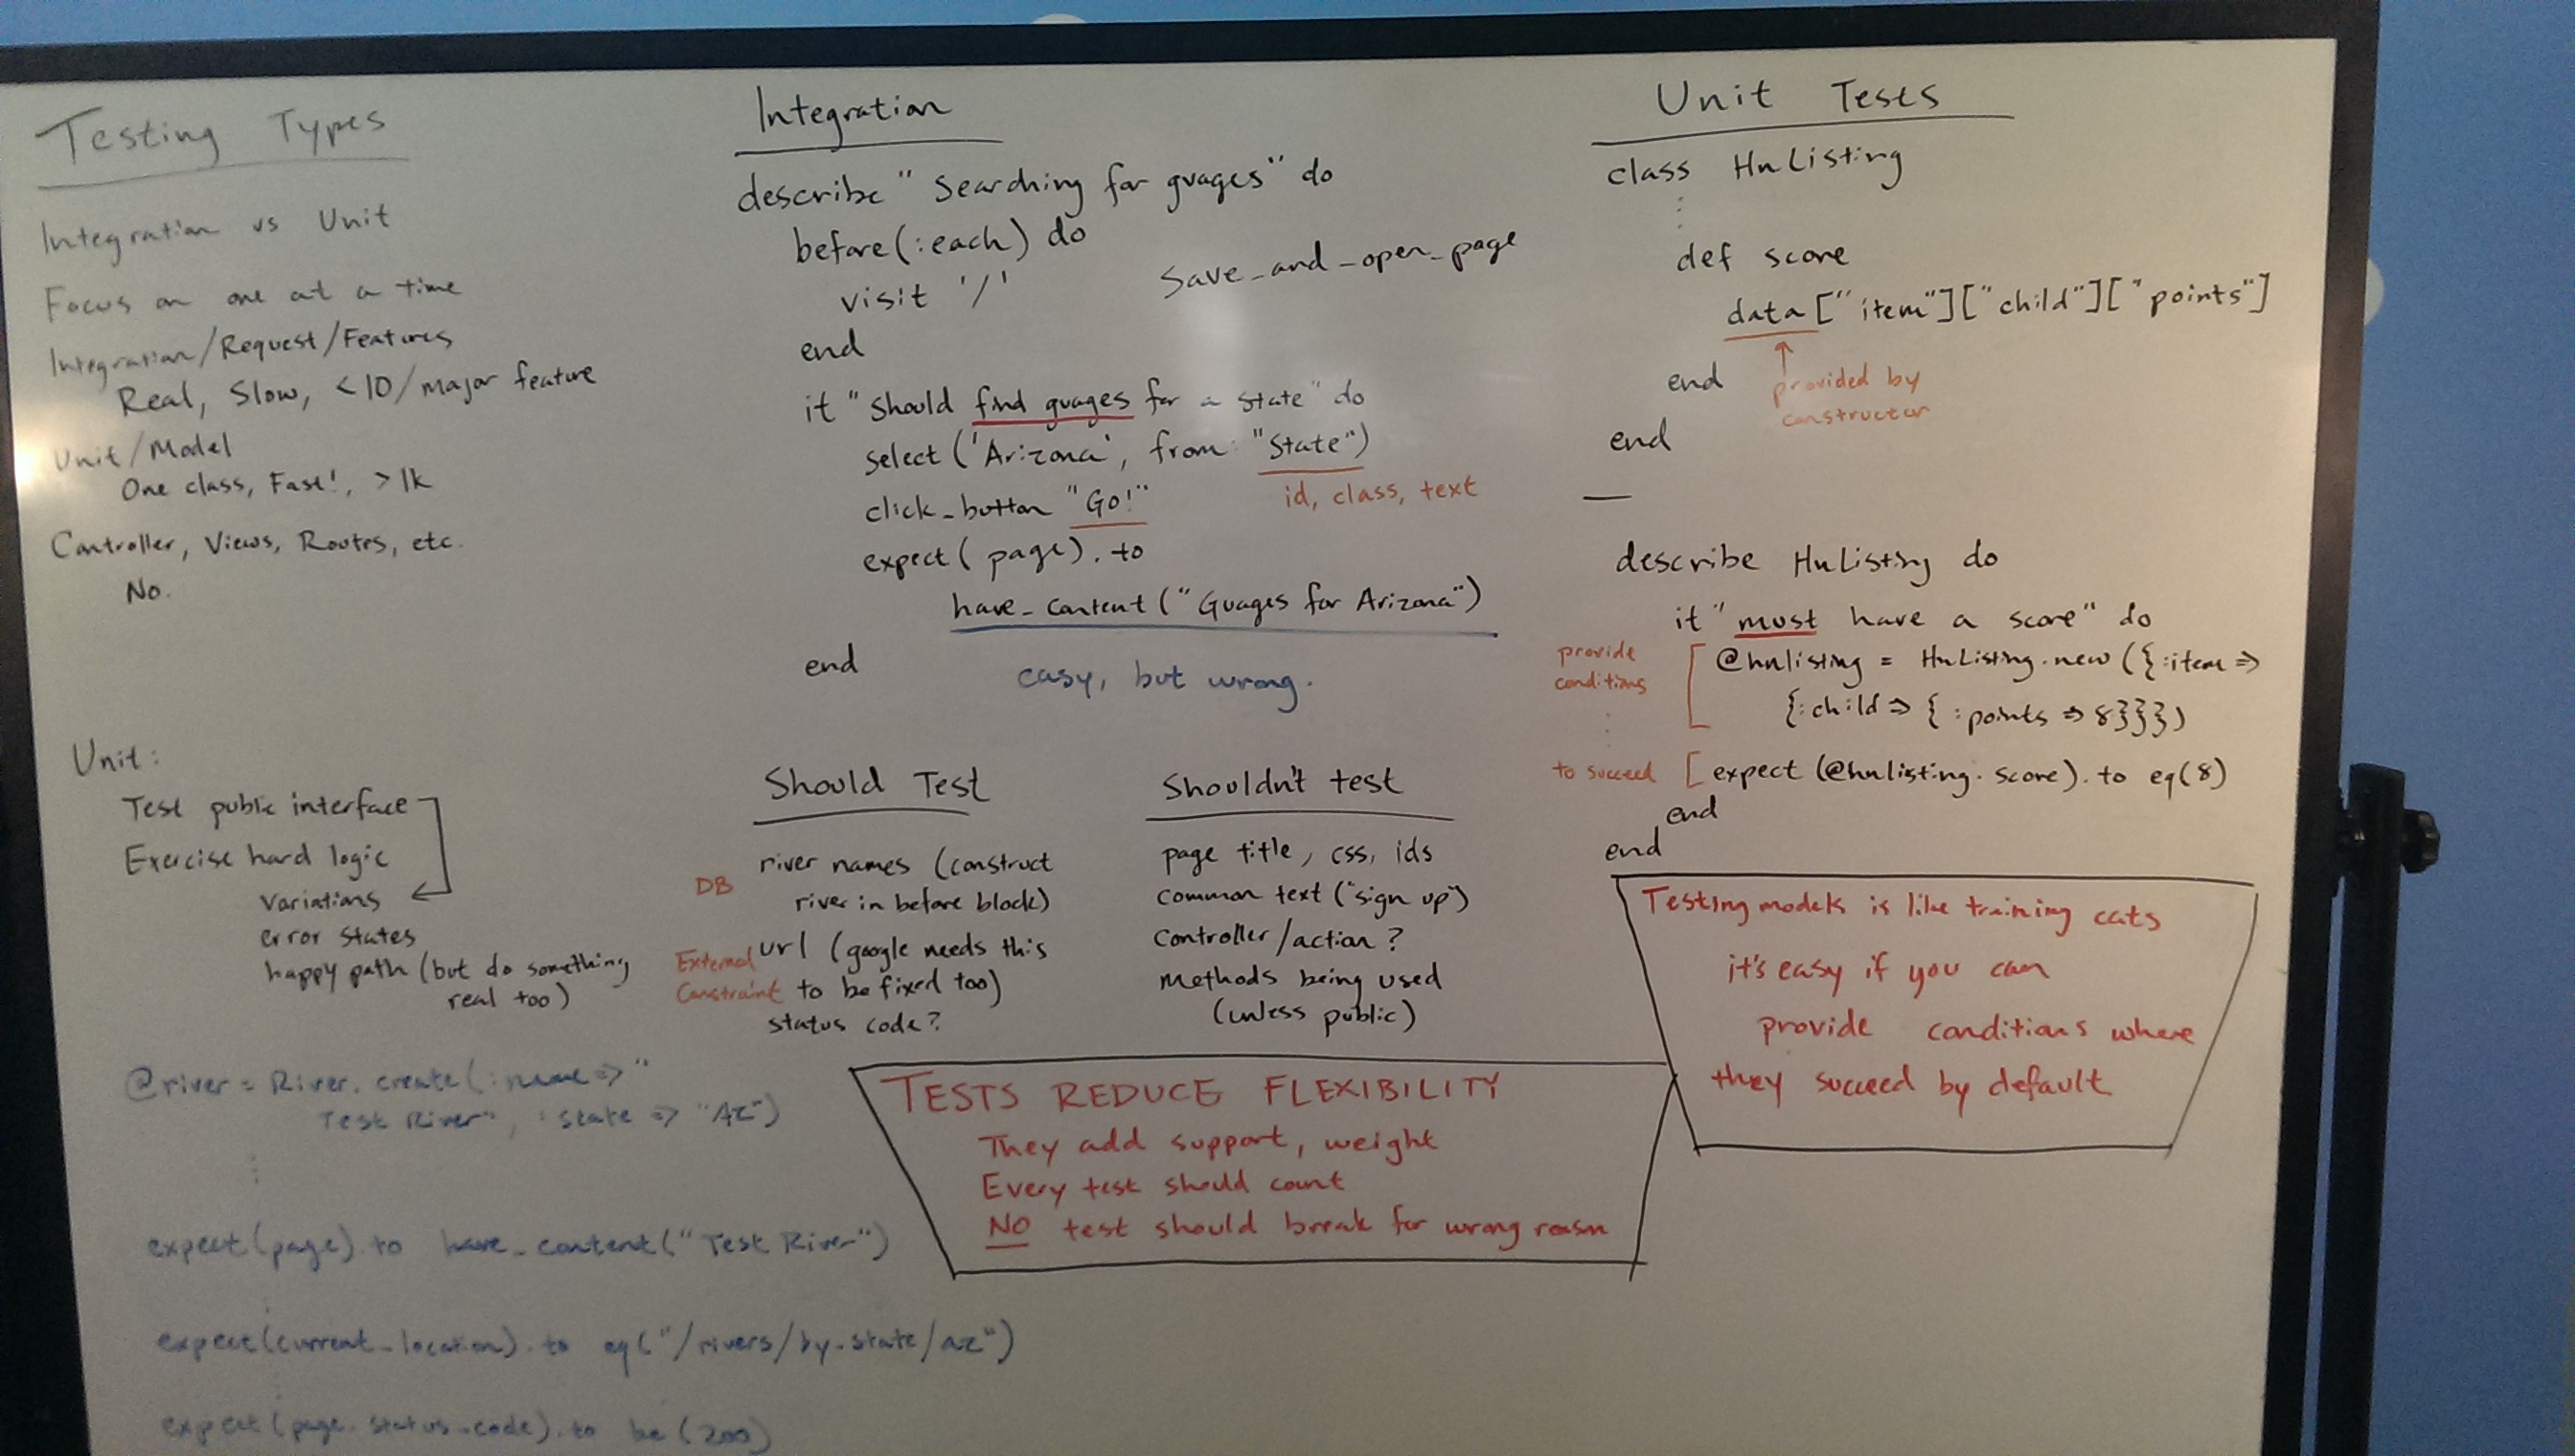 Testing Types
Integration vs Unit
Focus on one at a time
Integration/Request/Features
Real, Slow, <10/major feature
Unit/Model
One class, Fast!, >1k
Controller, Views, Routes, etc.
No.
Unit:
Test public interface
Exercise hard logic
Variations
error states
happy path (but do something
real too)
@river = River.create(:name => "
Test River", :state => "AZ")
⋮
expect(page).to have_content("Test River")
expect(current_location).to eq("/rivers/by-state/az")
expect(page.status_code).to be(200)
Integration
describe "Searching for guages" do
before(:each) do
visit '/'
save_and_open_page
end
it "should find guages for a state" do
select('Arizona', from: "State")
id, class, text
click_button "Go!"
expect(page).to
have_content("Guages for Arizona")
end
easy, but wrong.
Should Test
DB
river names (construct
river in before block)
External
Constraint
url (google needs this
to be fixed too)
status code?
Shouldn't test
page title, css, ids
common text ("sign up")
Controller/action?
methods being used
(unless public)
TESTS REDUCE FLEXIBILITY
They add support, weight
Every test should count
NO test should break for wrong reason
Unit Tests
class HnListing
⋮
def score
data["item"]["child"]["points"]
end
provided by
constructor
end
—
describe HnListing do
it "must have a score" do
provide
conditions
⋮
to succeed
[ @hnlisting = HnListing.new({:item =>
{:child => {:points => 8}}})
[ expect(@hnlisting.score).to eq(8)
end
end
Testing models is like training cats
it's easy if you can
provide conditions where
they succeed by default